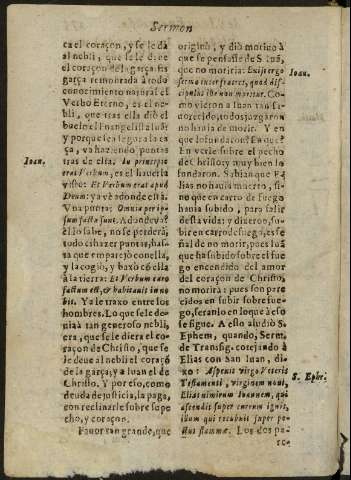 Sermon
ca el coraçon, y se le dà
al nebli, que se le diese
el coraçon de la garça. Es
garça remontada à todo
conocimiento natural el
Verbo Eterno, es el ne-
bli, que tras ella diò el
buelo el Evangelista Iuan
y porque la segura la ca-
ça, va haziendo puntas
Ioan.
tras de ella; In principio
erat Verbum, es el
visto: Et Verbum erat apud
Deum: ya ve adonde està.
Va punta: Omnia per ip-
sum facta sunt. Adonde và?
èl lo sabe, no se perderà,
todo es hazer puntas, has-
ta que emparejò con ella,
y la cogiò, y baxò con ella
à la tierra: Et Verbum caro
factum est, & habitauit in no-
bis. Ya le traxo entre los
hombres. Lo que se le de-
uia à tan generoso nebli,
era, que se le diera el co-
raçon de Christo, que se
le deue al nebli el coraçõ
de la garça; y a Iuan el de
Christo. Y por esso, como
deuda de justicia, la paga,
con reclinarle sobre su pe
cho, y coraçon.
Fauor tan grande, que
originò, y diò motiuo à
que se pensasse de S. Iuã,
que no moriria: Exijt ergo
Ioan.
sermo inter fratres, quod dis-
cipulus ille non moritur. Co-
mo vieron a Iuan tan fa-
uorecido, todos juzgaron
no hauia de morir. Y en
que lo fundaron? En que?
En verle sobre el pecho
de Christo; y muy bien lo
fundaron. Sabian que E-
lias no hauia muerto, si-
no que en carro de fuego
hauia subido, para salir
desta vida; y dixeron, su-
bir en carro de fuego, es se
ñal de no morir, pues Iuã
que ha subido sobre el fue
go encendido del amor
del coraçon de Christo,
no morirà; pues son pare
cidos en subir sobre fue-
go, seranlo en lo que à esso
se sigue. A esto aludiò S.
Ephem, quando, Serm,
de Transfig. cotejando à
Elias con San Iuan, di-
xo: Aspenis virgo Veteris
S. Ephr.
Testamenti, virginem noui,
Elias nimirum Ioannem, qui
ascendit super currum ignis,
illum qui recubuit super pe-
ctus flammæ. Los dos pa-
re-